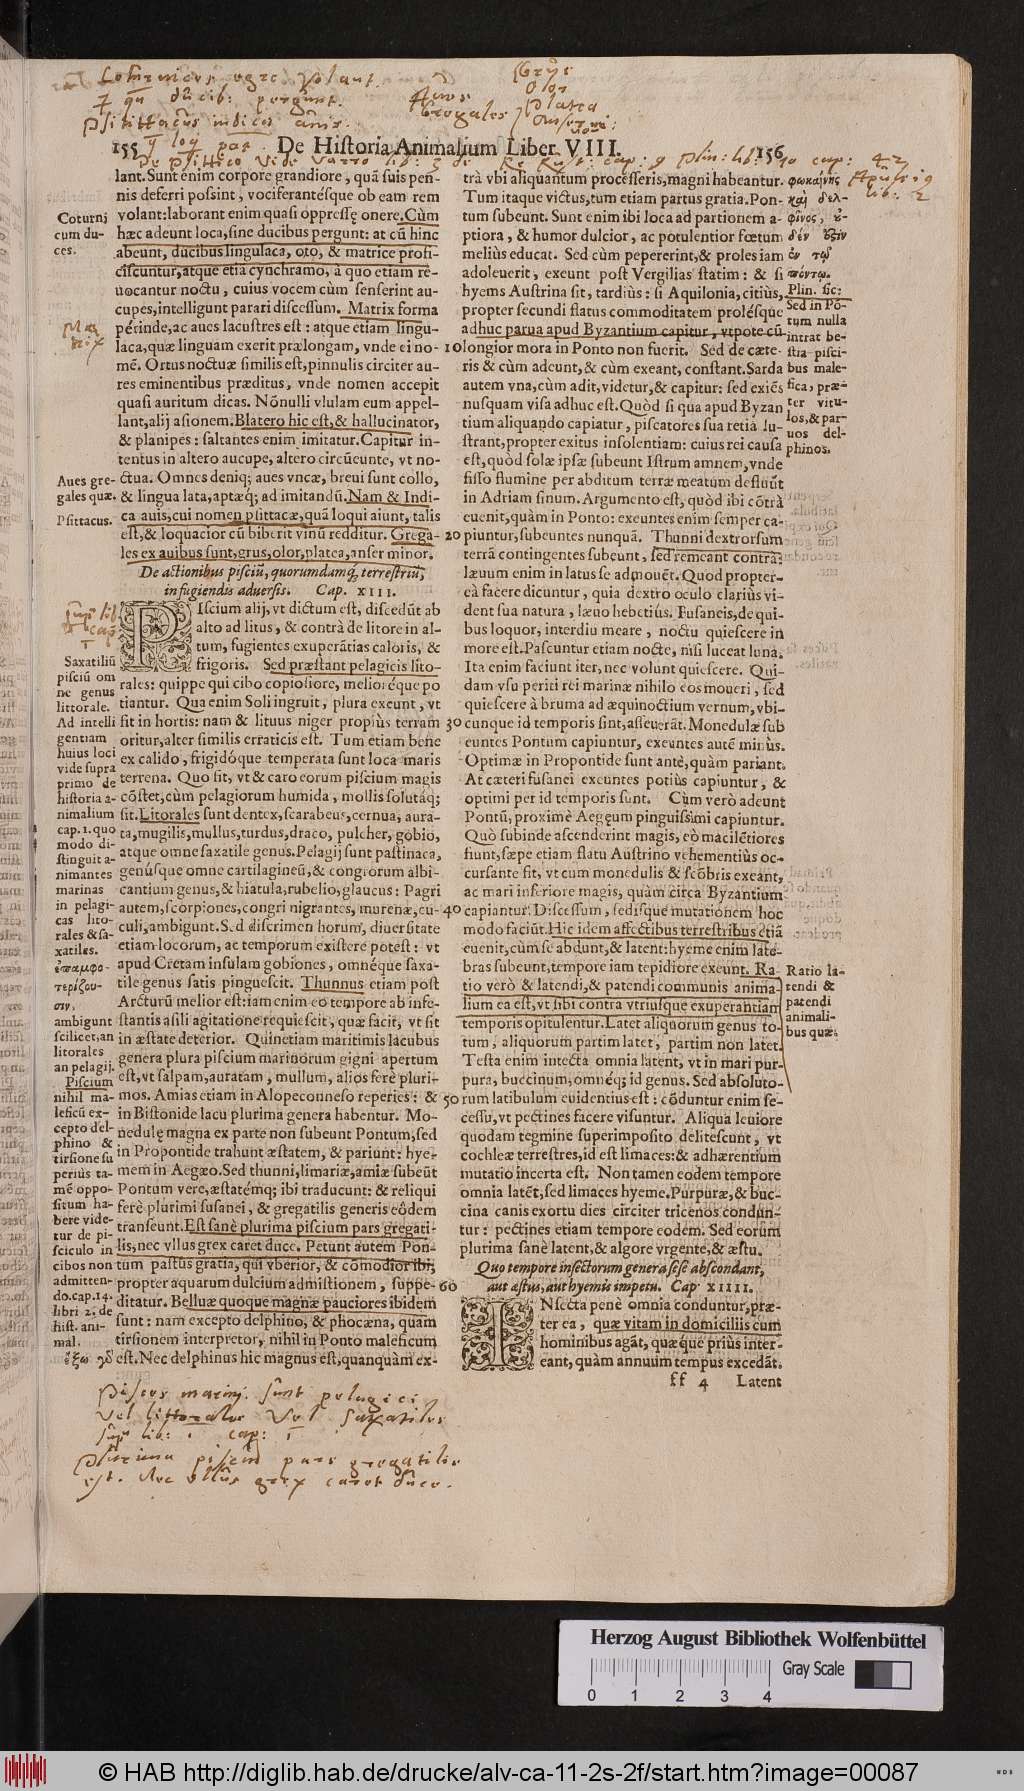 155 De Historia Animalium Liber VIII. 156
lant. Sunt enim corpore grandiore, quã suis pen-
nis deferri possint, vociferantésque ob eam rem
volant: laborant enim quasi oppressę onere. Cùm
hæc adeunt loca, sine ducibus pergunt: at cũ hinc
abeunt, ducibus lingulaca, oto, & matrice profi-
ciscuntur, atque etiã cynchramo, à quo etiam re-
uocantur noctu, cuius vocem cùm senserint au-
cupes, intelligunt parari discessum. Matrix forma
perinde, ac aues lacustres est: atque etiam lingu-
laca, quæ linguam exerit prælongam, vnde ei no-
mẽ. Ortus noctuæ similis est, pinnulis circiter au-
res eminentibus præditus, vnde nomen accepit
quasi auritum dicas. Nõnulli vlulam eum appel-
lant, alij asionem. Blatero hic est, & hallucinator,
& planipes: saltantes enim imitatur. Capitur in-
tentus in altero aucupe, altero circũeunte, vt no-
ctua. Omnes deniq; aues vncæ, breui sunt collo,
& lingua lata, aptæq́; ad imitandũ. Nam & Indi-
ca auis, cui nomen psittacæ, quã loqui aiunt, talis
est, & loquacior cũ biberit vinũ redditur. Grega-
les ex auibus sunt, grus, olor, platea, anser minor.
De actionibus pisciũ, quorumdamq́; terrestriũ,
in fugiendis aduersis. Cap. XIII.
PIscium alij, vt dictum est, discedũt ab
alto ad litus, & contrà de litore in al-
tum, fugientes exuperãtias caloris, &
frigoris. Sed præstant pelagicis lito-
rales: quippe qui cibo copiosiore, melioréque po
tiantur. Qua enim Sol ingruit, plura exeunt, vt
fit in hortis: nam & lituus niger propiùs terram
oritur, alter similis erraticis est. Tum etiam bene
ex calido, frigidóque temperata sunt loca maris
terrena. Quo fit, vt & caro eorum piscium magis
cõstet, cùm pelagiorum humida, mollis solutáq;
sit. Litorales sunt dentex, scarabeus, cernua, aura-
ta, mugilis, mullus, turdus, draco, pulcher, gobio,
atque omne saxatile genus. Pelagij sunt pastinaca,
genúsque omne cartilagineũ, & congrorum albi-
cantium genus, & hiatula, rubelio, glaucus: Pagri
autem, scorpiones, congri nigrantes, murenæ, cu-
culi, ambigunt. Sed discrimen horum, diuersitate
etiam locorum, ac temporum existere potest: vt
apud Cretam insulam gobiones, omnéque saxa-
tile genus satis pinguescit. Thunnus etiam post
Arcturũ melior est: iam enim eo tempore ab infe-
stantis asili agitatione requiescit, quæ facit, vt sit
in æstate deterior. Quinetiam maritimis lacubus
genera plura piscium marinorum gigni apertum
est, vt salpam, auratam, mullum, alios ferè pluri-
mos. Amias etiam in Alopeconneso reperies: &
in Bistonide lacu plurima genera habentur. Mo-
nedulę magna ex parte non subeunt Pontum, sed
in Propontide trahunt æstatem, & pariunt: hye-
mem in Aegæo. Sed thunni, limariæ, amiæ subeũt
Pontum vere, æstatémq; ibi traducunt: & reliqui
ferè plurimi fusanei, & gregatilis generis eôdem
transeunt. Est sanè plurima piscium pars gregati-
lis, nec vllus grex caret duce. Petunt autem Pon-
tum pastus gratia, qui vberior, & cõmodior ibi,
propter aquarum dulcium admistionem, suppe-
ditatur. Belluæ quoque magnæ pauciores ibidem
sunt: nam excepto delphino, & phocæna, quam
tirsionem interpretor, nihil in Ponto maleficum
est. Nec delphinus hic magnus est, quanquàm ex-
Coturni
cum du-
ces.
Matrix
Aues gre-
gales quæ.
Psittacus.
Saxatiliũ
pisciũ om
ne genus
littorale.
Ad intelli
gentiam
huius loci
vide supra
primo de
historia a-
nimalium
cap. 1. quo
modo di-
stinguit a-
nimantes
marinas
in pelagi-
cas lito-
rales & sa-
xatiles.
ἐπαμφο-
τερίζου-
σιν,
ambigunt
scilicet, an
litorales
an pelagij.
Piscium
nihil ma-
leficũ ex-
cepto del-
phino &
tirsione su
perius ta-
mẽ oppo-
situm ha-
bere vide-
tur de pi-
sciculo in
cibos non
admitten-
do. cap. 14.
libri 2. de
hist. ani-
mal.
ἔξω γδ
trà vbi aliquantum processeris, magni habeantur.
Tum itaque victus, tum etiam partus gratia. Pon-
tum subeunt. Sunt enim ibi loca ad partionem a-
ptiora, & humor dulcior, ac potulentior fœtum
meliùs educat. Sed cùm pepererint, & proles iam
adoleuerit, exeunt post Vergilias statim: & si
hyems Austrina sit, tardiùs: si Aquilonia, citiùs,
propter secundi flatus commoditatem prolésque
adhuc parua apud Byzantium capitur, vtpote cũ
10 longior mora in Ponto non fuerit. Sed de cæte-
ris & cùm adeunt, & cùm exeant, constant. Sarda
autem vna, cùm adit, videtur, & capitur: sed exiẽs
nusquam visa adhuc est. Quòd si qua apud Byzan
tium aliquando capiatur, piscatores sua retia lu-
strant, propter exitus insolentiam: cuius rei causa
est, quòd solæ ipsæ subeunt Istrum amnem, vnde
fisso flumine per abditum terræ meatum defluũt
in Adriam sinum. Argumento est, quòd ibi cõtrà
euenit, quàm in Ponto: exeuntes enim semper ca-
20 piuntur, subeuntes nunquã. Thunni dextrorsum
terrã contingentes subeunt, sed remeant contrà:
læuum enim in latus se admouẽt. Quod propter-
eà facere dicuntur, quia dextro oculo clariùs vi-
dent sua natura, læuo hebetiùs. Fusaneis, de qui-
bus loquor, interdiu meare, noctu quiescere in
more est. Pascuntur etiam nocte, nisi luceat luna.
Ita enim faciunt iter, nec volunt quiescere. Qui-
dam vsu periti rei marinæ nihilo eos moueri, sed
quiescere à bruma ad æquinoctium vernum, vbi-
30 cunque id temporis sint, asseuerãt. Monedulæ sub
euntes Pontum capiuntur, exeuntes autẽ minùs.
Optimæ in Propontide sunt antè, quàm pariant.
At cæteri fusanei exeuntes potiùs capiuntur, &
optimi per id temporis sunt. Cùm verò adeunt
Pontũ, proximè Aegęum pinguissimi capiuntur.
Quò subinde ascenderint magis, eò macilẽtiores
fiunt, sæpe etiam flatu Austrino vehementiùs oc-
cursante fit, vt cum monedulis & scõbris exeant,
ac mari inferiore magis, quàm circa Byzantium
40 capiantur. Discessum, sedisque mutationem hoc
modo faciũt. Hic idem affectibus terrestribus etiã
euenit, cùm se abdunt, & latent: hyeme enim late-
bras subeunt, tempore iam tepidiore exeunt. Ra-
tio verò & latendi, & patendi communis anima-
lium ea est, vt sibi contra vtriusque exuperantiam
temporis opitulentur. Latet aliquorum genus to-
tum, aliquorum partim latet, partim non latet.
Testa enim intecta omnia latent, vt in mari pur-
pura, buccinum, omnéq; id genus. Sed absoluto-
50 rum latibulum euidentius est: cõduntur enim se-
cessu, vt pectines facere visuntur. Aliqua leuiore
quodam tegmine superimposito delitescunt, vt
cochleæ terrestres, id est limaces: & adhærentium
mutatio incerta est. Non tamen eodem tempore
omnia latẽt, sed limaces hyeme. Purpuræ, & buc-
cina canis exortu dies circiter tricenos condun-
tur: pectines etiam tempore eodem. Sed eorum
plurima sanè latent, & algore vrgente, & æstu.
Quo tempore insectorum genera sese abscondant,
60 aut æstus, aut hyemis impetu. Cap XIIII.
INsecta penè omnia conduntur, præ-
ter ea, quæ vitam in domiciliis cum
hominibus agãt, quæque priùs inter-
eant, quàm annuum tempus excedãt.
ff 4 Latent
φωκαίνης
καὶ δελ-
φῖνος, ἐ-
δέν ὅξιν
ἐν τῷ
πόντῳ.
Plin. sic:
Sed in Põ-
tum nulla
intrat be-
stia pisci-
bus male-
fica, præ-
ter vitu-
los, & par-
uos del-
phinos.
Ratio la-
tendi &
patendi
animali-
bus quæ.
Pisces marini sunt pelagici
vel littorales vel saxatiles
sup. lib: 1 cap: 1
Plurima pisciũ pars gregatilis
est. Nec ullus grex caret duce.
Herzog August Bibliothek Wolfenbüttel
Gray Scale
0 1 2 3 4
© HAB http://diglib.hab.de/drucke/alv-ca-11-2s-2f/start.htm?image=00087